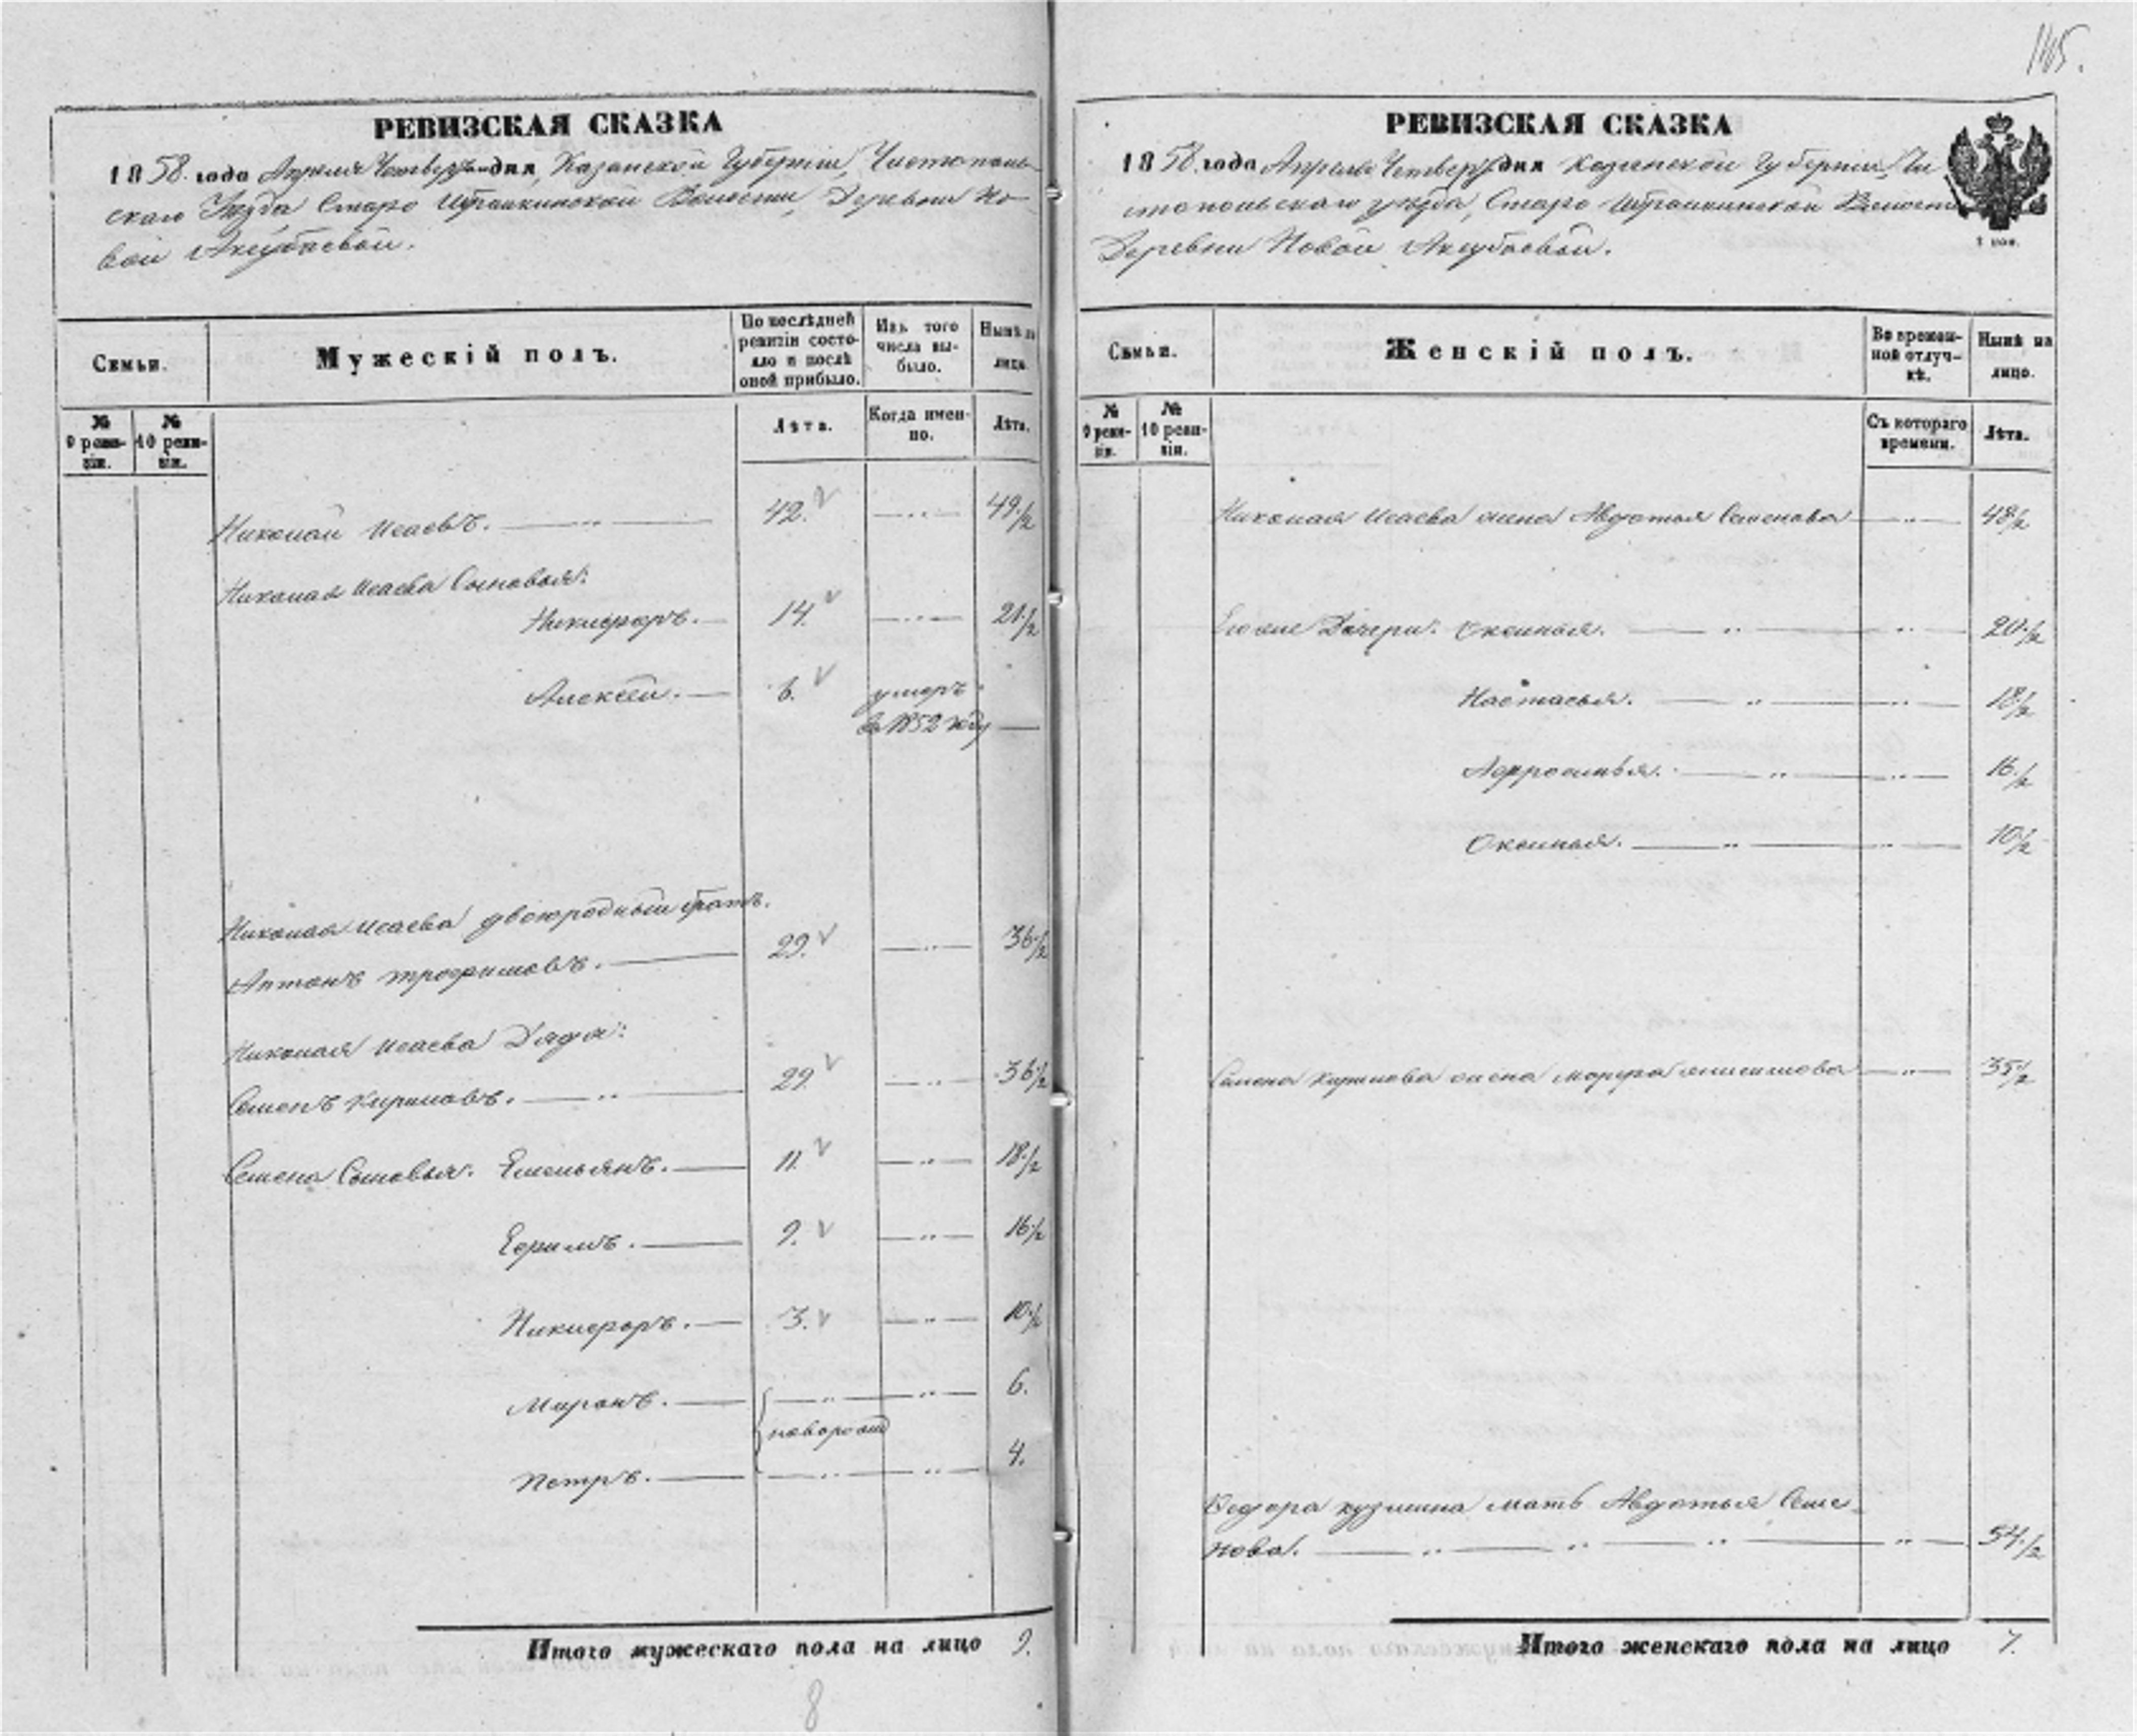 115.
РЕВИЗСКАЯ СКАЗКА
1858 года Апреля Четвер дня, Казанской Губернiи, Чистополь
скаго Уѣзда Старо Волости, Деревни Но
вой Аксубаевой.
Семьи.
Мужескiй полъ.
По послѣдней ревизiи состояло и послѣ оной прибыло.
Изъ того числа выбыло.
Нынѣ на лицо
№ 9 ревизiи.
№ 10 ревизiи.
Лѣта.
Когда именно.
Лѣта.
Николай Исаевъ. 42. 49½
Николая Исаева Сыновья:
Никифоръ. 14. 21½
Алексѣй. 6. умеръ
въ 1852 году
Николая Исаева двоюродный братъ.
Антонъ Трофимовъ. 29. 36½
Николая Исаева Дядя:
Семенъ Кириловъ. 29. 36½
Семена Сыновья. Емельянъ. 11. 18½
Ефимъ. 9. 16½
Никифоръ. 3. 10½
Миронъ. 6.
новорож
Петръ. 4.
Итого мужескаго пола на лицо 9.
8
РЕВИЗСКАЯ СКАЗКА
1858 года Апреля Четвер дня Казанской Губернiи, Чи
стопольскаго уѣзда, Старо Волости
Деревни Новой Аксубаевой.
Семьи.
Женскiй полъ.
Во временной отлучкѣ.
Нынѣ на лицо.
№ 9 ревизiи.
№ 10 ревизiи.
Съ котораго времени.
Лѣта.
Николая Исаева жена Авдотья Семенова 48½
Его же Дочери: Оксинья. 20½
Настасья. 18½
Афросинья. 16½
Оксинья. 10½
Семена Кирилова жена Марфа Анисимова 35½
Ѳедора Кузмина мать Авдотья Семе-
нова. 54½
Итого женскаго пола на лицо 7.